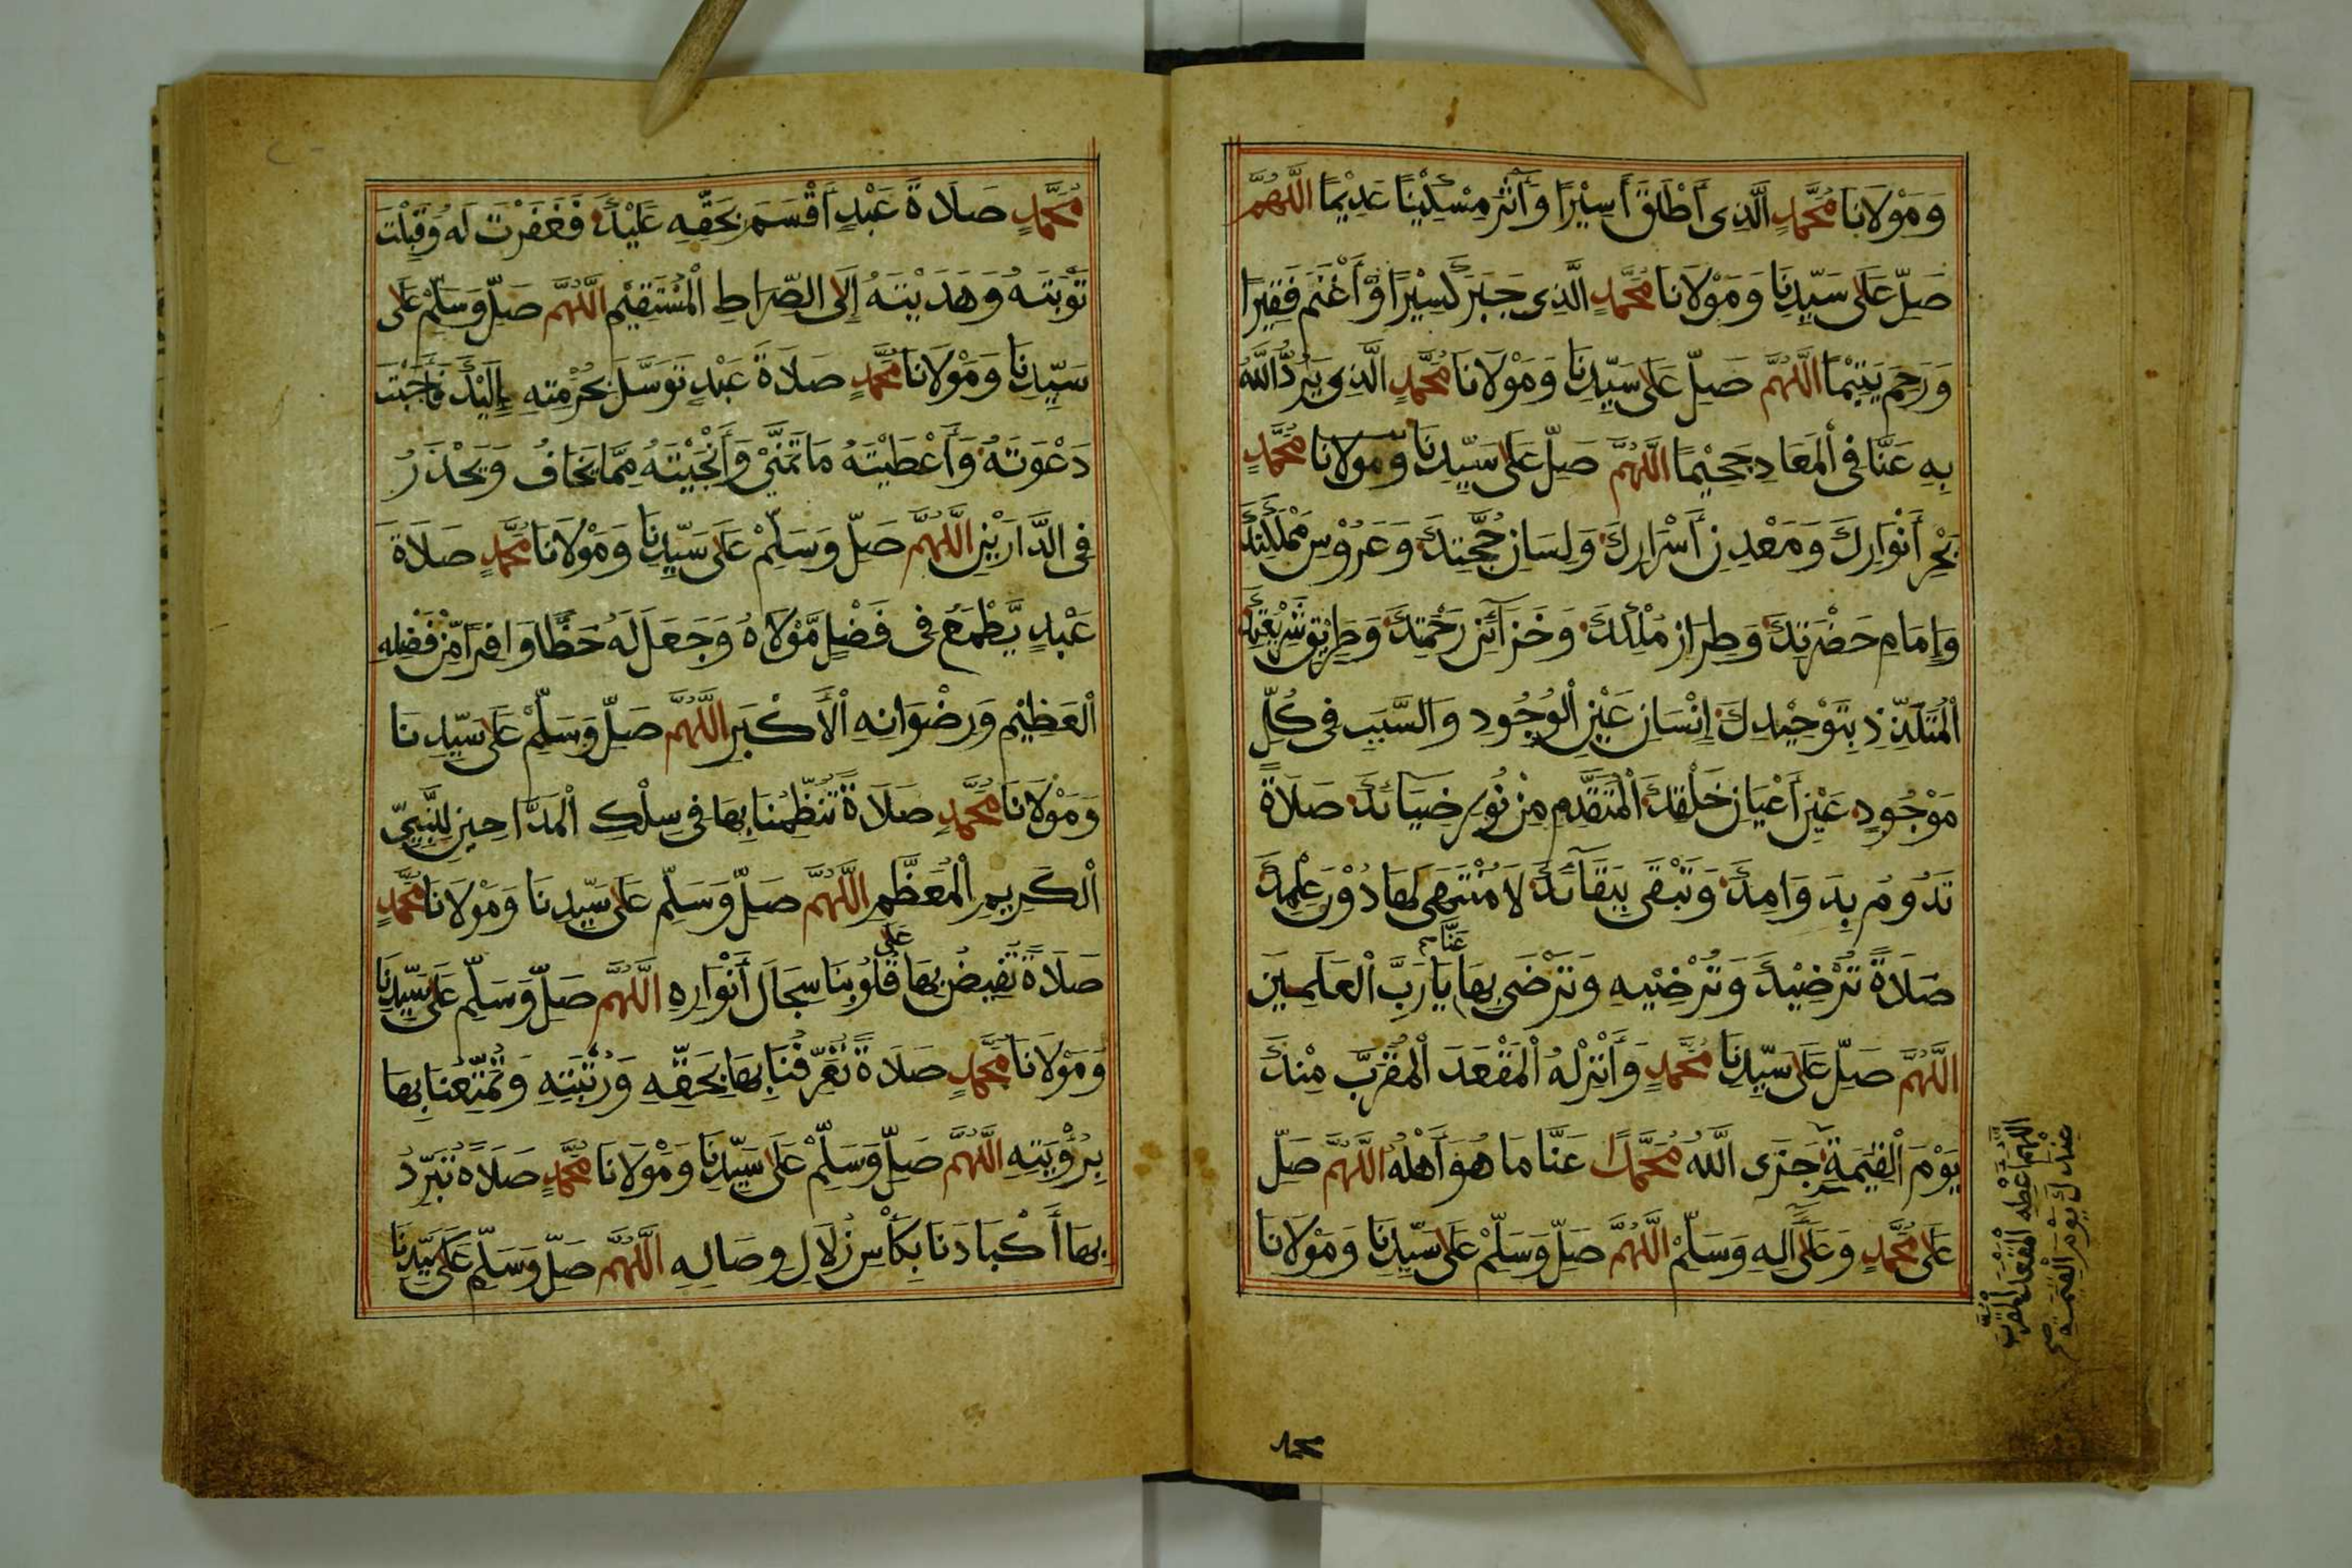 وَمَوْلَانَا مُحَمَّدٍ الَّذِى أَطْلَقَ أَسِيْرًا وَآثَرَ مِسْكِيْنًا عَدِيْمًا اللَّهُمَّ
صَلِّ عَلَى سَيِّدِنَا وَمَوْلَانَا مُحَمَّدٍ الَّذِى جَبَرَ كَسِيْرًا وَّأَغْنَمَ فَقِيرًا
وَرَحِمَ يَتِيْمًا اللَّهُمَّ صَلِّ عَلَى سَيِّدِنَا وَمَوْلَانَا مُحَمَّدٍ الَّذِى يَرُدُّ اللَّهُ
بِهِ عَنَّا فِى الْمَعَادِ جَحِيْمًا اللَّهُمَّ صَلِّ عَلَى سَيِّدِنَا وَمَوْلَانَا مُحَمَّدٍ
بَحْرِ أَنْوَارِكَ وَمَعْدِنِ أَسْرَارِكَ وَلِسَانِ حُجَّتِكَ وَعَرُوْسِ مَمْلَكَتِكَ
وَإِمَامِ حَضْرَتِكَ وَطِرَازِ مُلْكِكَ وَخَزَآئِنِ رَحْمَتِكَ وَطَرِيْقِ شَرِيْعَتِكَ
الْمُتَلَذِّذِ بِتَوْحِيْدِكَ إِنْسَانِ عَيْنِ الْوُجُودِ وَالسَّبَبِ فِى كُلِّ
مَوْجُودٍ عَيْنِ أَعْيَانِ خَلْقِكَ الْمُتَقَدِّمِ مِنْ نُوْرِ ضِيَائِكَ صَلَاةً
تَدُوْمُ بِدَوَامِكَ وَتَبْقَى بِبَقَآئِكَ لَا مُنْتَهَى لَهَا دُوْنَ عِلْمِكَ
صَلَاةً تُرْضِيْكَ وَتُرْضِيْهِ وَتَرْضَى بِهَا عَنَّا يَا رَبَّ الْعَلَمِينَ
اللَّهُمَّ صَلِّ عَلَى سَيِّدِنَا مُحَمَّدٍ وَأَنْزِلْهُ الْمَقْعَدَ الْمُقَرَّبَ مِنْكَ
يَوْمَ الْقِيَمَةِ جَزَى اللَّهُ مُحَمَّدًا عَنَّا مَا هُوَ أَهْلُهُ اللَّهُمَّ صَلِّ
عَلَى مُحَمَّدٍ وَعَلَى آلِهِ وَسَلِّمْ اللَّهُمَّ صَلِّ وَسَلِّمْ عَلَى سَيِّدِنَا وَمَوْلَانَا
اللهم أعطه المقعد المقرب
عندك يوم القيمة صح
محمد
مُحَمَّدٍ صَلَاةَ عَبْدٍ أَقْسَمَ بِحَقِّهِ عَلَيْكَ فَغَفَرْتَ لَهُ وَقَبِلْتَ
تَوْبَتَهُ وَهَدَيْتَهُ إِلَى الصِّرَاطِ الْمُسْتَقِيْمِ اللَّهُمَّ صَلِّ وَسَلِّمْ عَلَى
سَيِّدِنَا وَمَوْلَانَا مُحَمَّدٍ صَلَاةَ عَبْدٍ تَوَسَّلَ بِحُرْمَتِهِ إِلَيْكَ فَأَجَبْتَ
دَعْوَتَهُ وَأَعْطَيْتَهُ مَا تَمَنَّىْ وَأَنْجَيْتَهُ مِمَّا يَخَافُ وَيَحْذَرُ
فِى الدَّارَيْنِ اللَّهُمَّ صَلِّ وَسَلِّمْ عَلَى سَيِّدِنَا وَمَوْلَانَا مُحَمَّدٍ صَلَاةَ
عَبْدٍ يَّطْمَعُ فِى فَضْلِ مَوْلَاهُ وَجَعَلَ لَهُ حَظًّا وَافِرًا مِّنْ فَضْلِهِ
الْعَظِيْمِ وَرِضْوَانِهِ الْأَكْبَرِ اللَّهُمَّ صَلِّ وَسَلِّمْ عَلَى سَيِّدِنَا
وَمَوْلَانَا مُحَمَّدٍ صَلَاةً تُنَظِّمُنَا بِهَا فِى سِلْكِ الْمَدَّاحِيْنَ لِلنَّبِيِّ
الْكَرِيمِ الْمُعَظَّمِ اللَّهُمَّ صَلِّ وَسَلِّمْ عَلَى سَيِّدِنَا وَمَوْلَانَا مُحَمَّدٍ
صَلَاةً تُفِيضُ بِهَا عَلَى قُلُوبِنَا سِجَالَ أَنْوَارِهِ اللَّهُمَّ صَلِّ وَسَلِّمْ عَلَى سَيِّدِنَا
وَمَوْلَانَا مُحَمَّدٍ صَلَاةً تُعَرِّفُنَا بِهَا بِحَقِّهِ وَرُتْبَتِهِ وَتُمَتِّعُنَا بِهَا
بِرُؤْيَتِهِ اللَّهُمَّ صَلِّ وَسَلِّمْ عَلَى سَيِّدِنَا وَمَوْلَانَا مُحَمَّدٍ صَلَاةً تُبَرِّدُ
بِهَا أَكْبَادَنَا بِكَأْسِ زُلَالِ وِصَالِهِ اللَّهُمَّ صَلِّ وَسَلِّمْ عَلَى سَيِّدِنَا